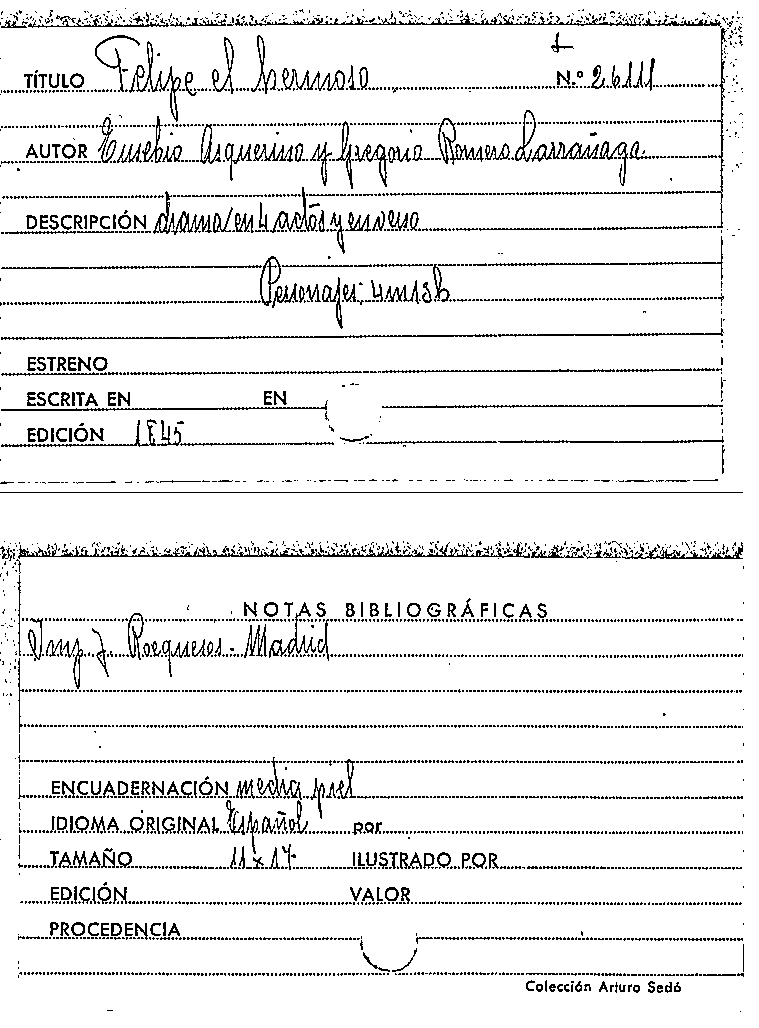 TÍTULO Felipe el hermoso N.º 26111
AUTOR Eusebio Asquerino y Gregorio Romero Larrañaga
DESCRIPCIÓN drama en 4 actos y en verso
Personajes: 4m 13h
ESTRENO
ESCRITA EN EN
EDICIÓN 1845
NOTAS BIBLIOGRÁFICAS
Imp. J. Roequeses - Madrid
ENCUADERNACIÓN media piel
IDIOMA ORIGINAL Español por
TAMAÑO 11 x 17 ILUSTRADO POR
EDICIÓN VALOR
PROCEDENCIA
Colección Arturo Sedó